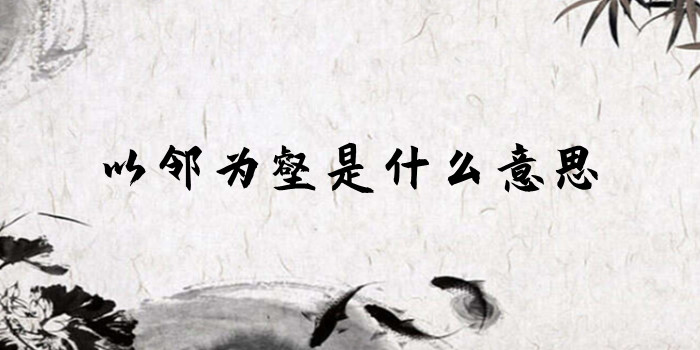 以邻为壑是什么意思